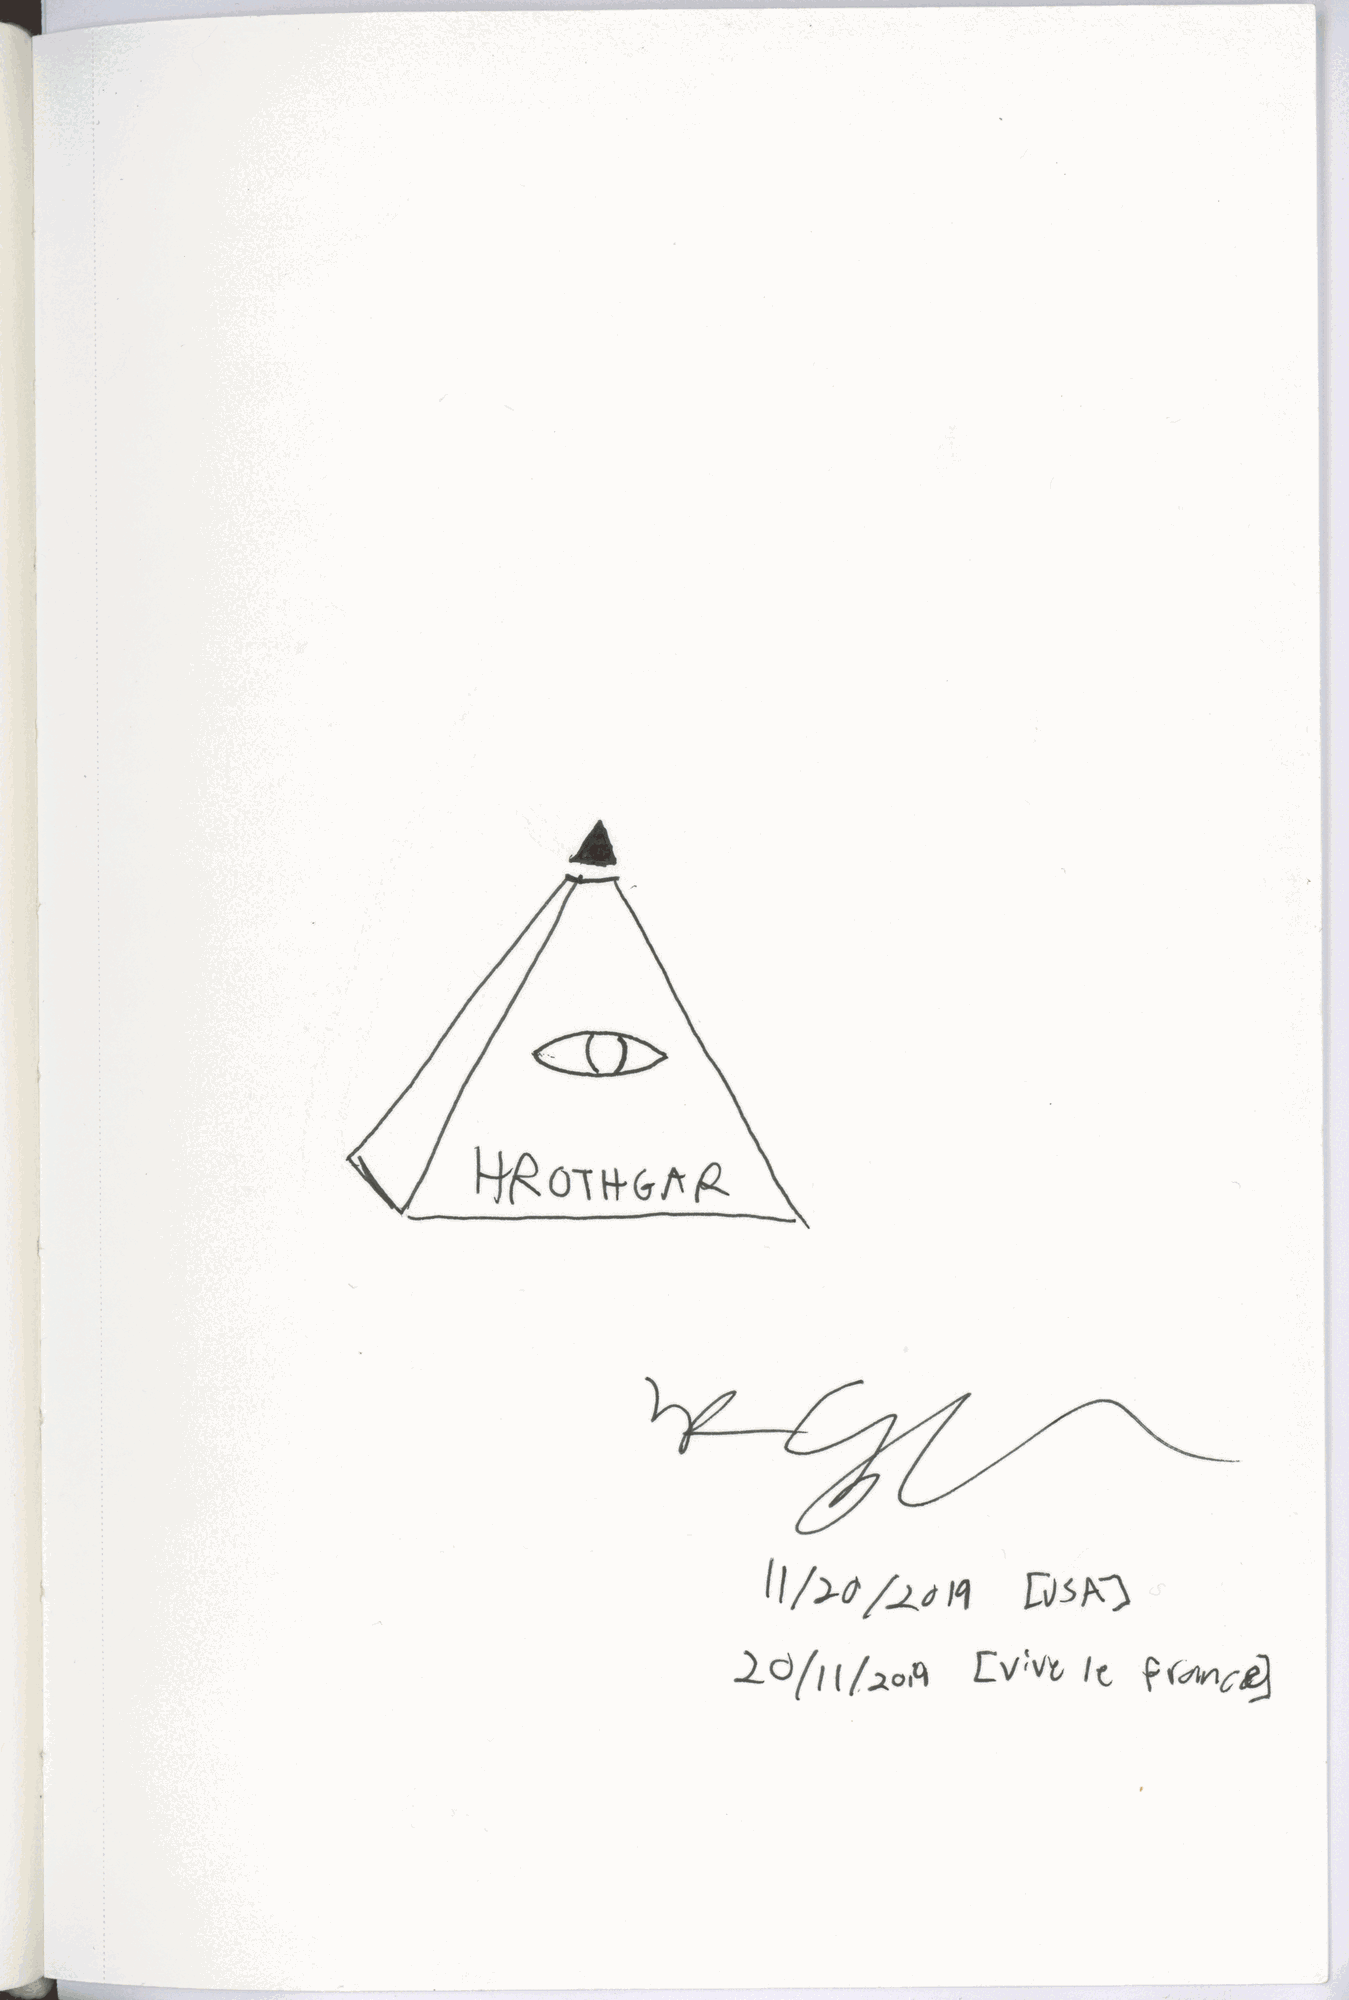 HROTHGAR
11/20/2019 [USA]
20/11/2019 [vive le france]